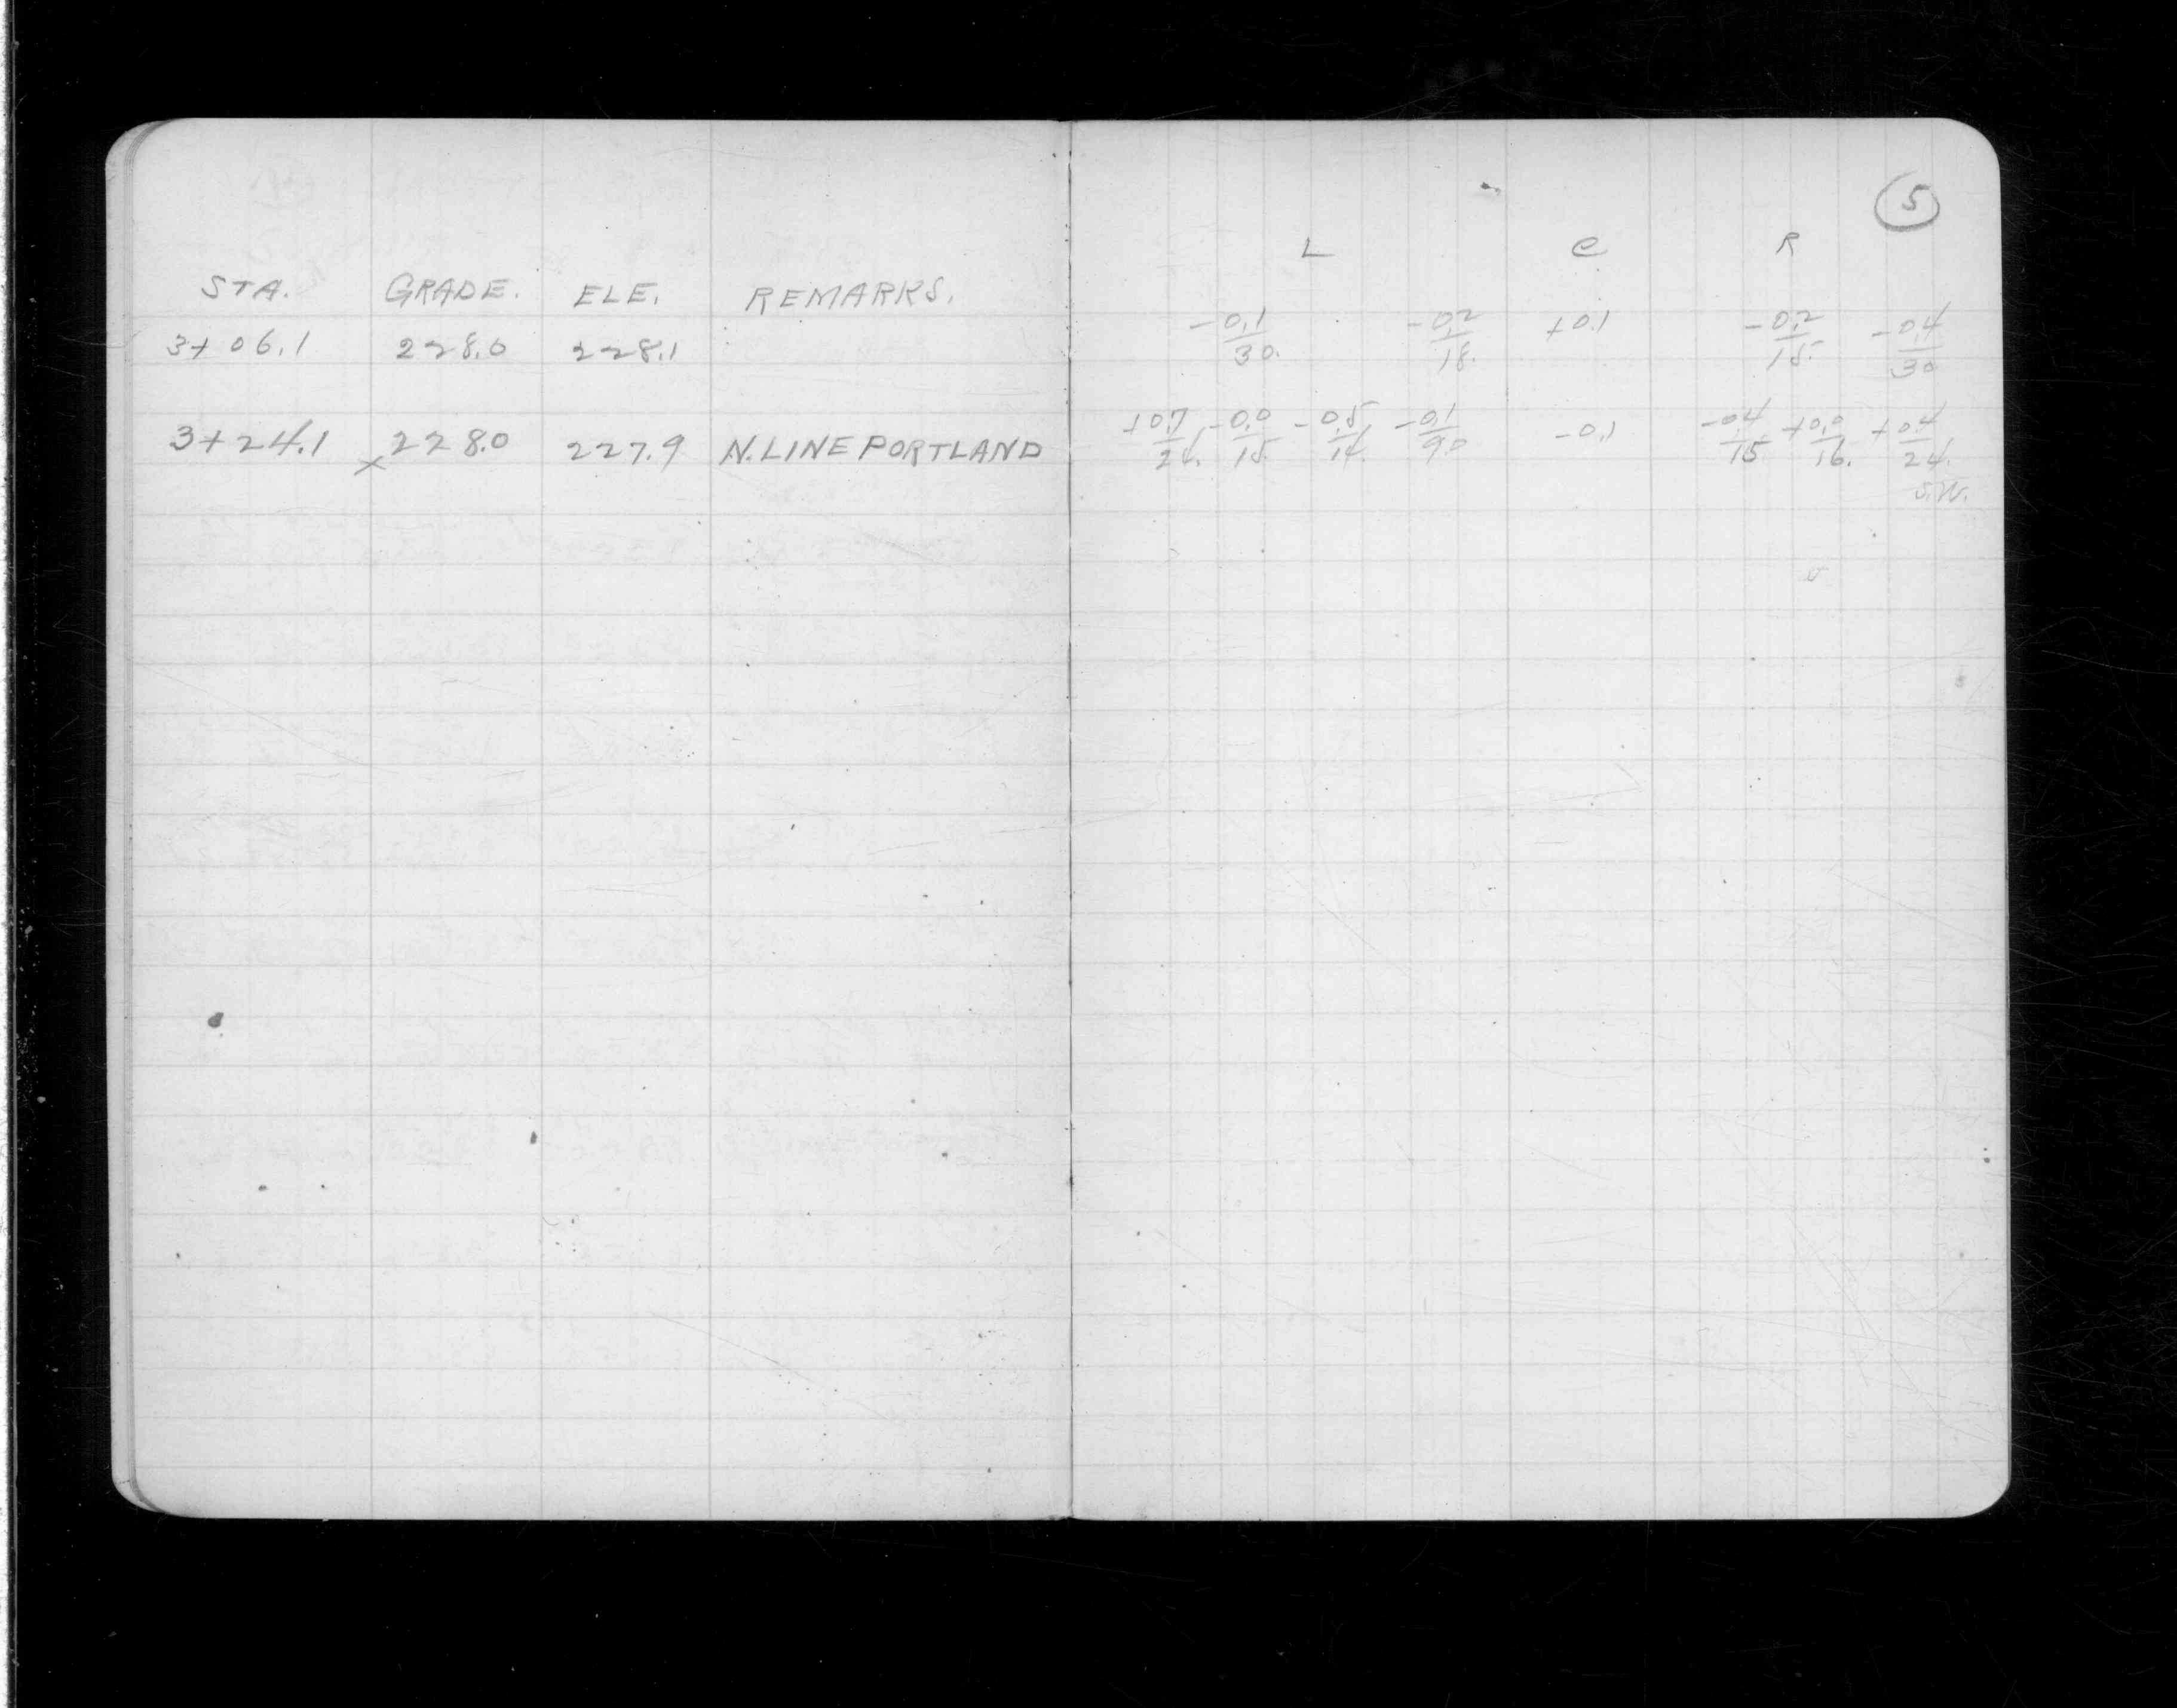 5
L C R
STA. GRADE. ELE. REMARKS.
3+06.1 228.0 228.1 -0.1/30. -0.2/18. +0.1 -0.2/15. -0.4/30
3+24.1 x 228.0 227.9 N.LINE PORTLAND +0.7/24. -0.0/15. -0.5/14. -0.1/9.0 -0.1 -0.4/15 +0.0/16. +0.4/24.
S.W.